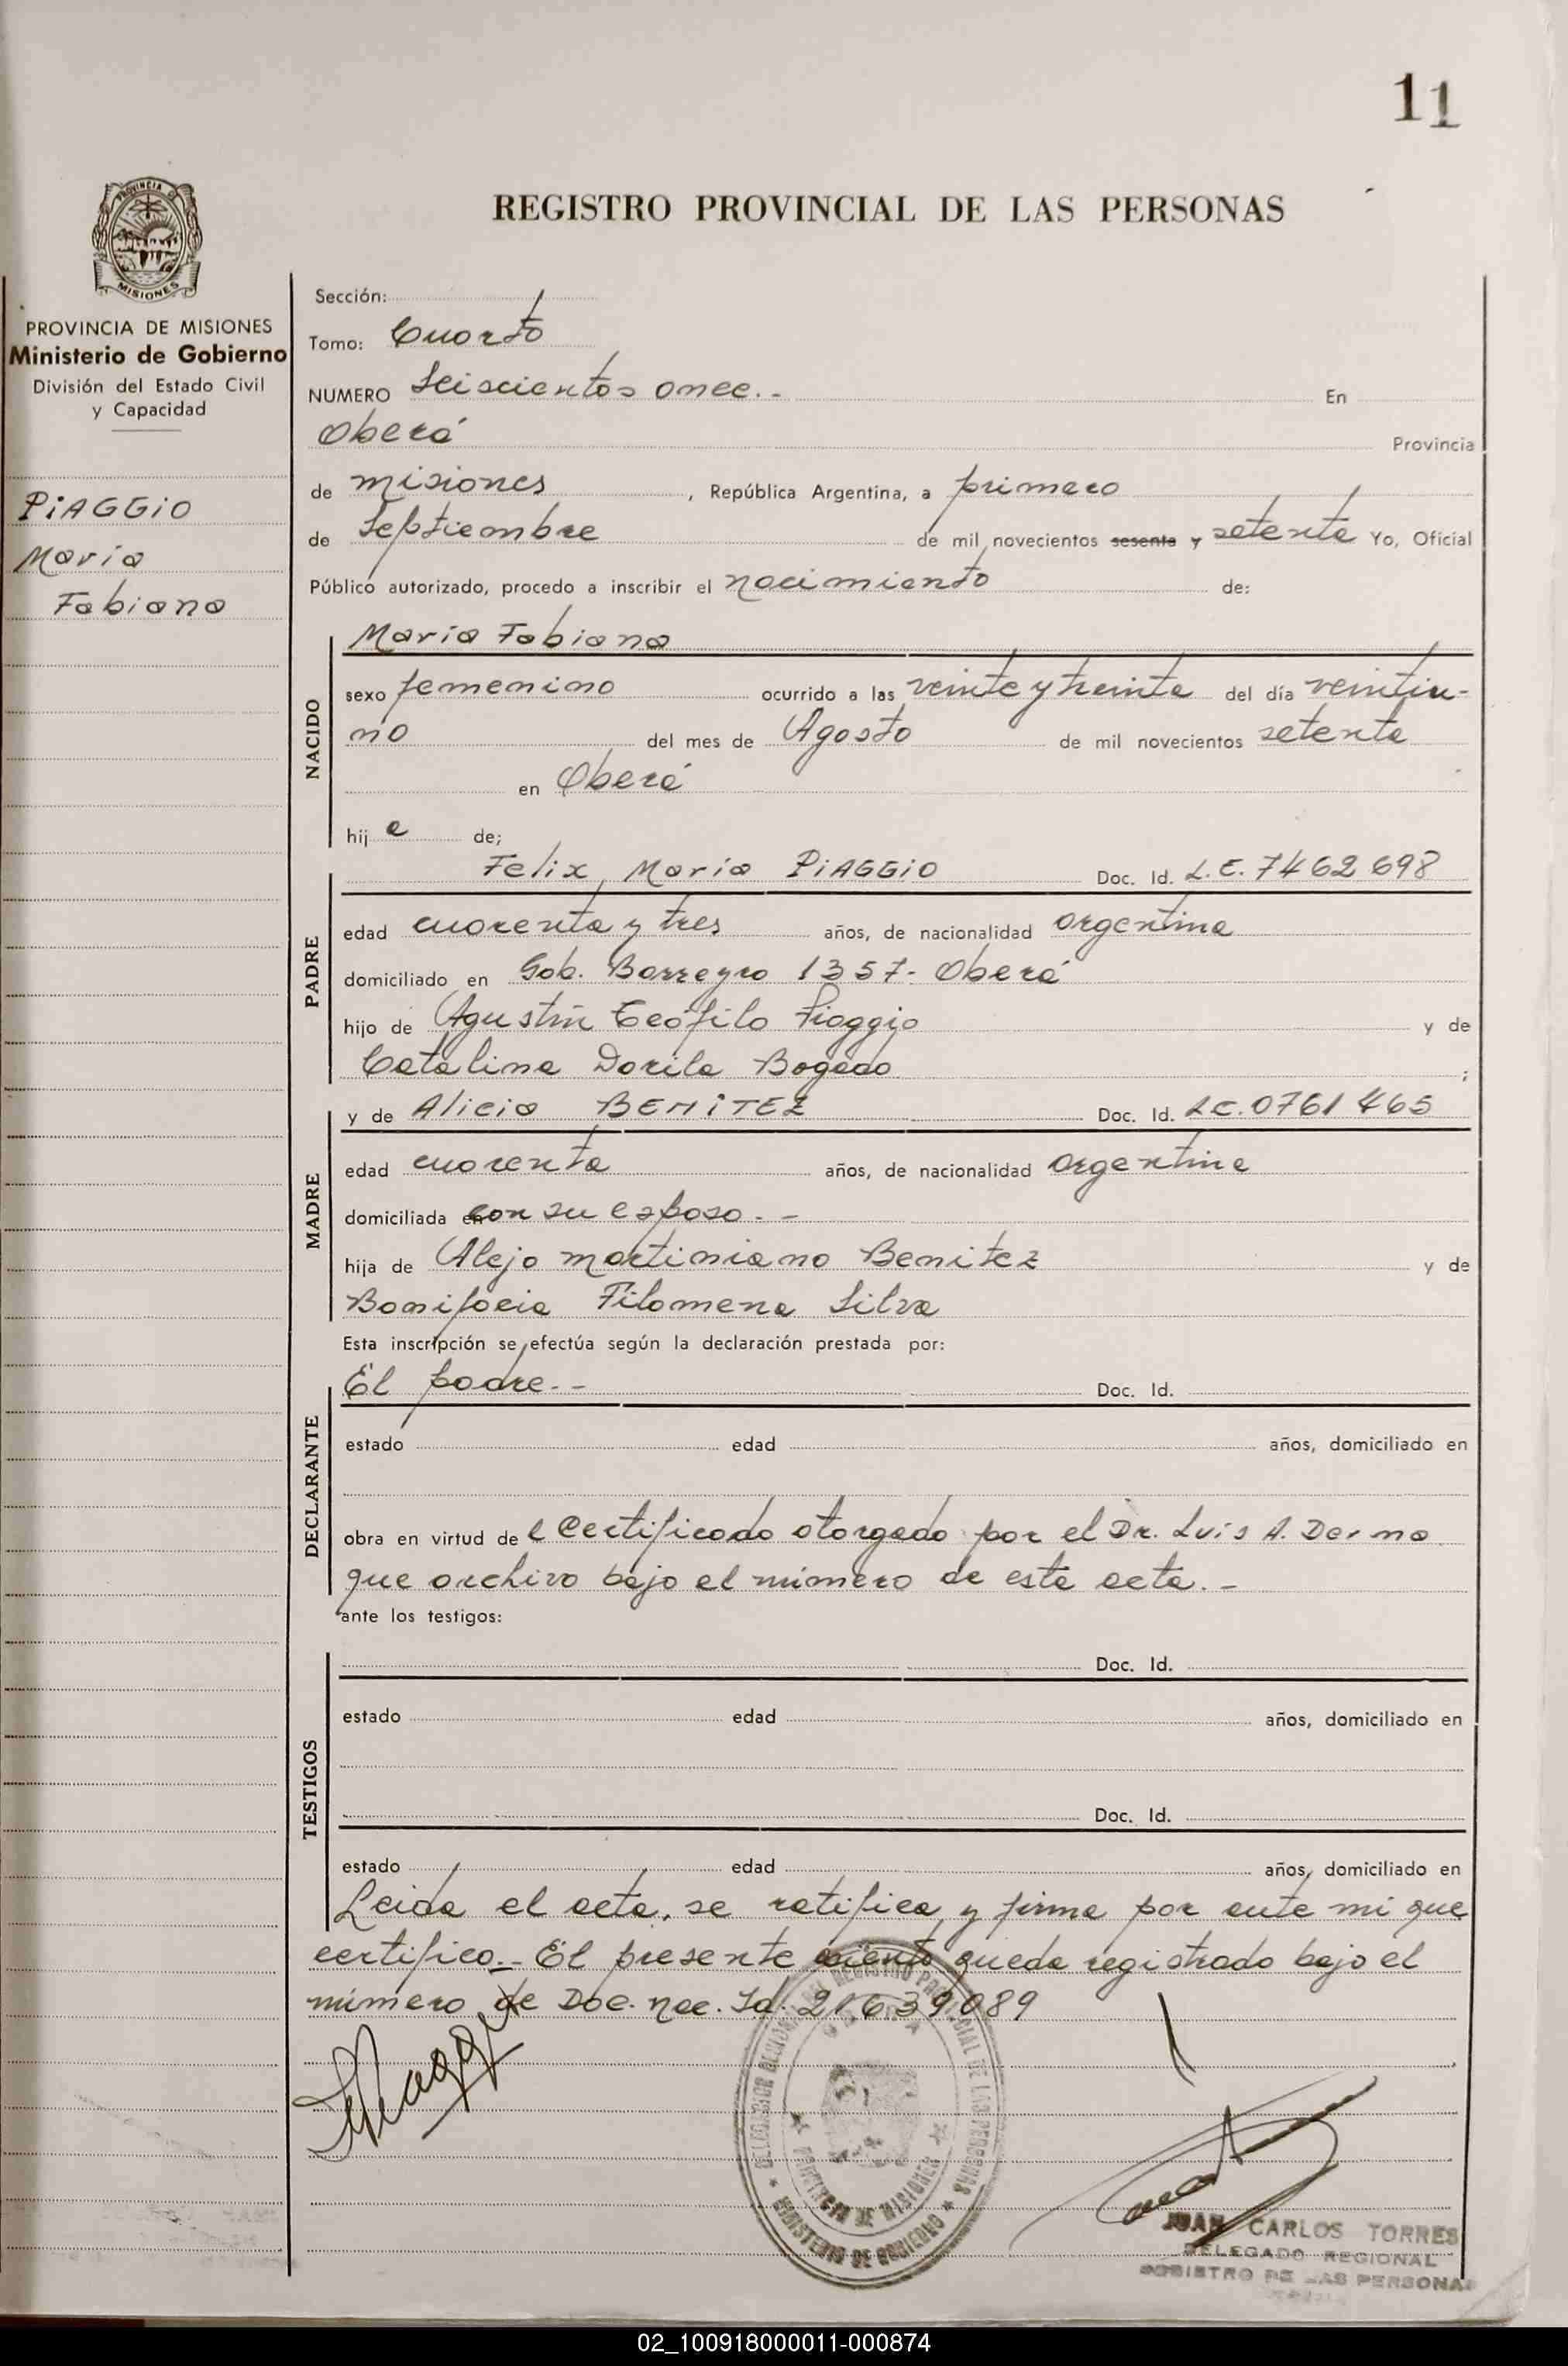 11
PROVINCIA DE
MISIONES
REGISTRO PROVINCIAL DE LAS PERSONAS
PROVINCIA DE MISIONES
Ministerio de Gobierno
División del Estado Civil
y Capacidad
PIAGGIO
María
Fabiana
Sección:
Tomo: Cuarto
NUMERO Seiscientos once.- En
Oberá Provincia
de Misiones, República Argentina, a primero
de Septiembre de mil novecientos sesenta y setenta Yo, Oficial
Público autorizado, procedo a inscribir el nacimiento de:
María Fabiana
NACIDO
sexo femenino ocurrido a las veinte y treinta del día veintiu-
no del mes de Agosto de mil novecientos setenta
en Oberá
hij a de;
Felix María PIAGGIO Doc. Id. L.E. 7462698
PADRE
edad cuarenta y tres años, de nacionalidad argentina
domiciliado en Gob. Barreyro 1357- Oberá
hijo de Agustín Teófilo Piaggio y de
Catalina Dorila Bogado ;
y de Alicia BENITEZ Doc. Id. LC. 0761465
MADRE
edad cuarenta años, de nacionalidad argentina
domiciliada con su esposo.-
hija de Alejo Martiniano Benitez y de
Bonifacia Filomena Silva
Esta inscripción se efectúa según la declaración prestada por:
El padre.-- Doc. Id.
DECLARANTE
estado edad años, domiciliado en
obra en virtud de l Certificado otorgado por el Dr. Luis A. Derna
que archivo bajo el número de esta acta.-
ante los testigos:
Doc. Id.
TESTIGOS
estado edad años, domiciliado en
Doc. Id.
estado edad años, domiciliado en
Leida el acta, se ratifica y firma por ante mi que
certifico.- El presente queda registrado bajo el
número de Doc. nac. Id. 21639089
REGISTRO PROVINCIAL DE LAS PERSONAS
PROVINCIA DE MISIONES
MINISTERIO DE GOBIERNO
JUAN CARLOS TORRES
DELEGADO REGIONAL
REGISTRO DE LAS PERSONAS
02_100918000011-000874